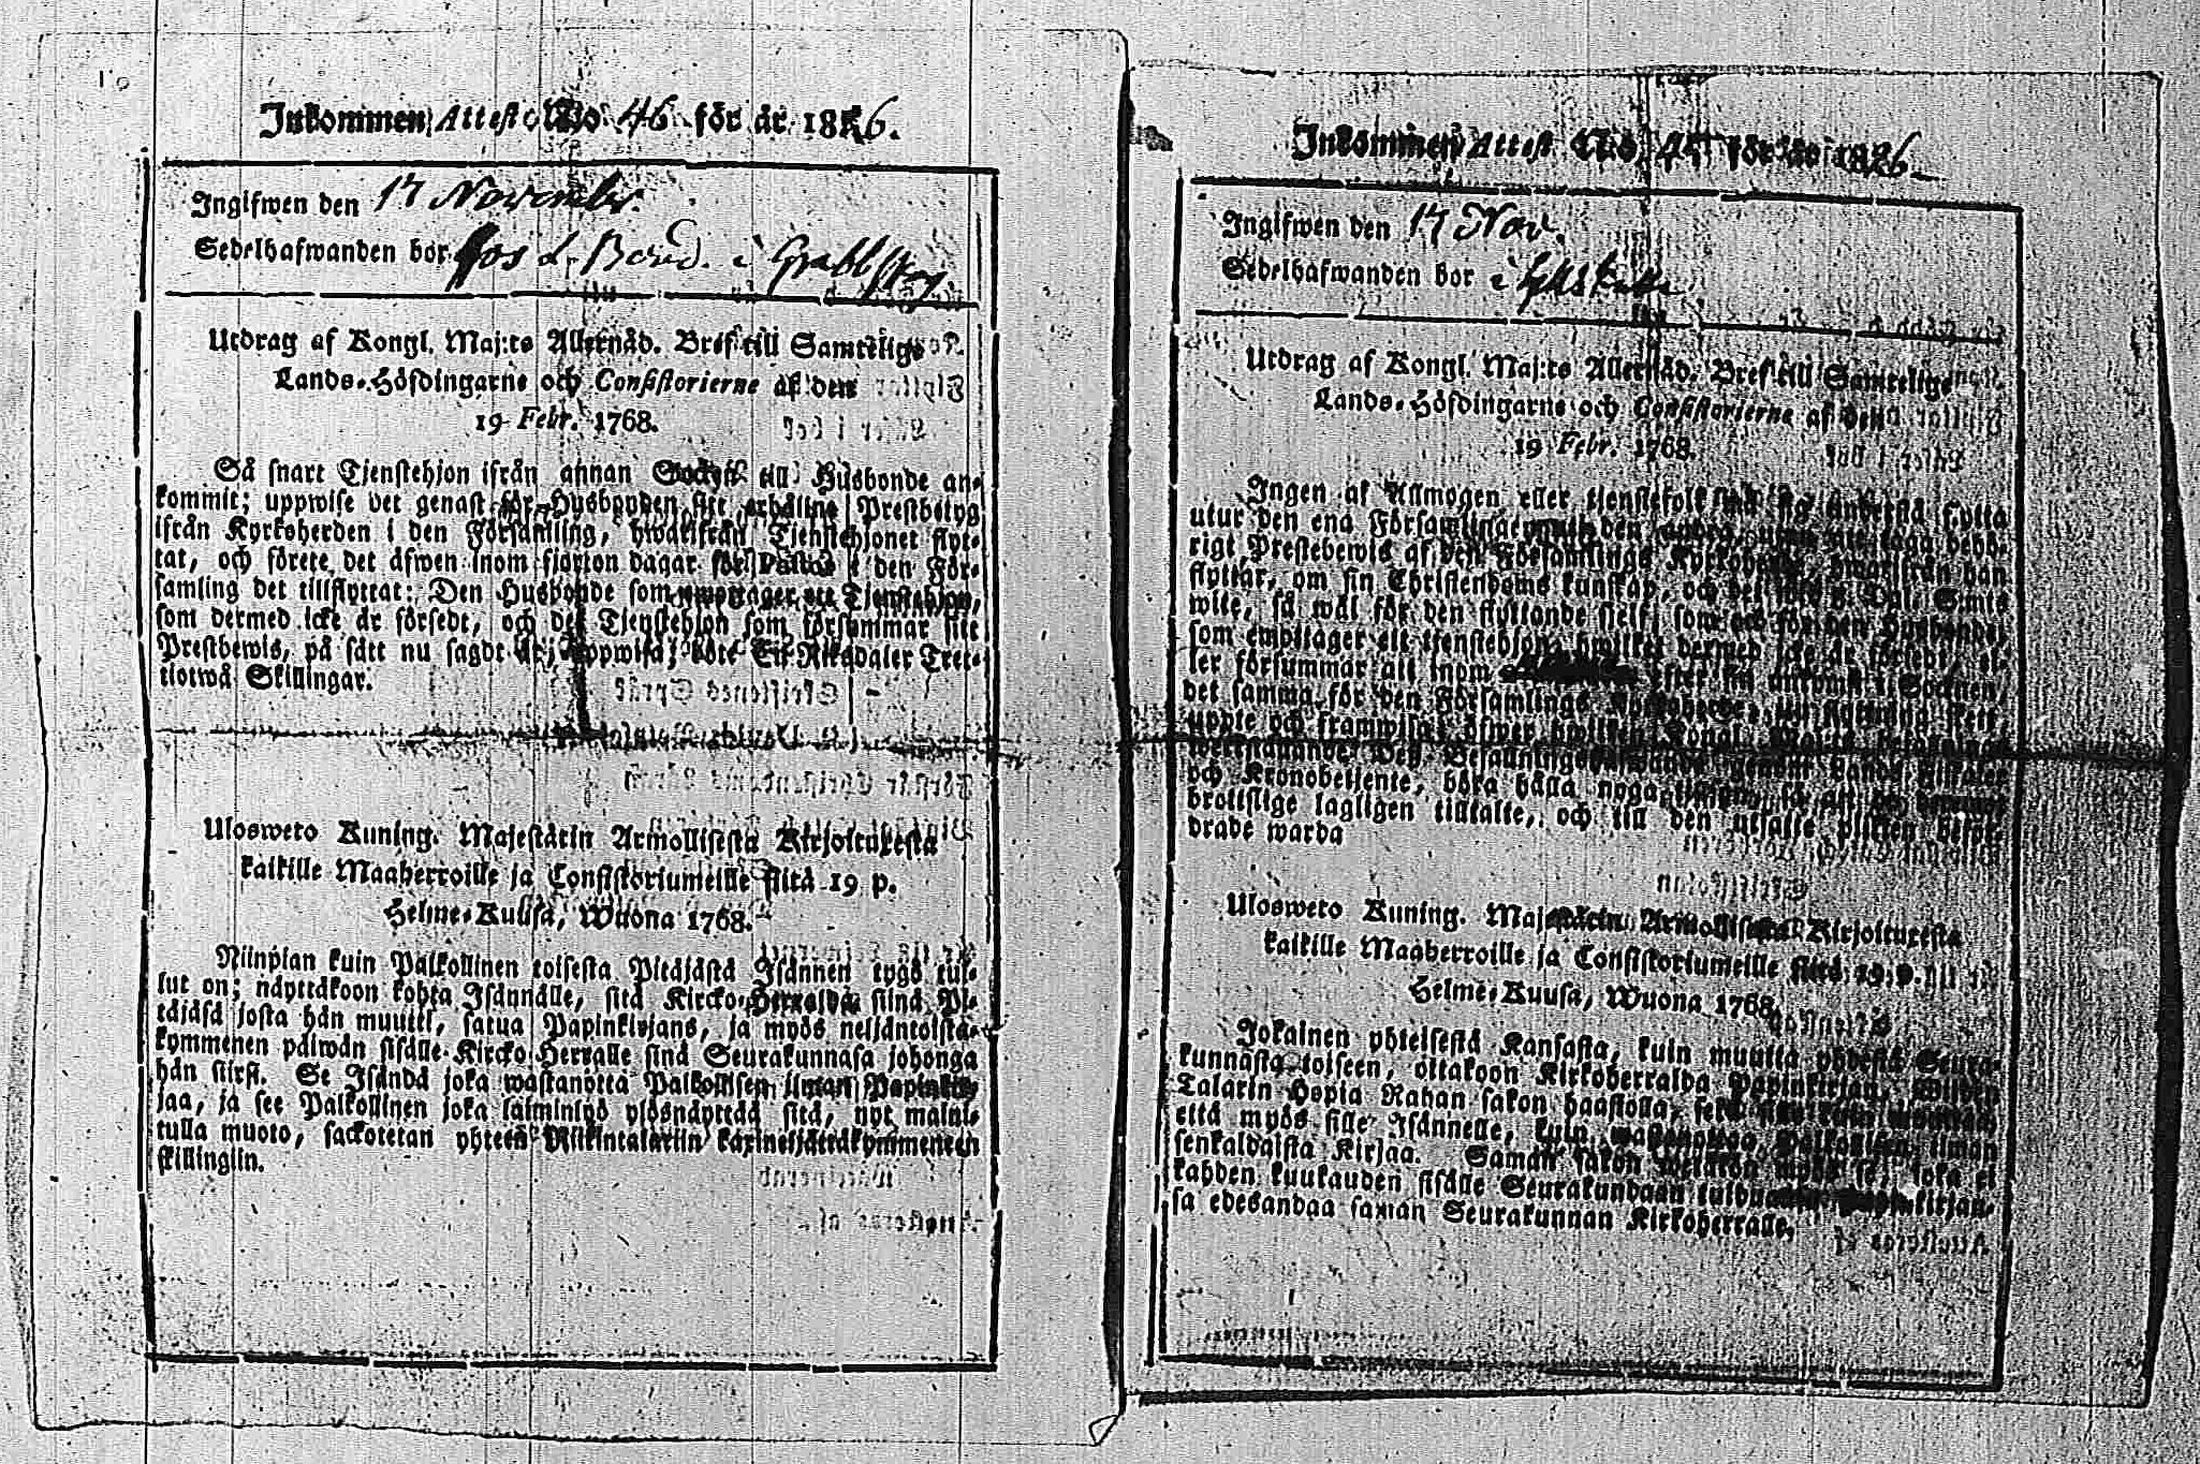 Inkommen Attest No 46 för år 1826.
Ingifwen den 17 November.
Sedelhafwanden bor hos L. Bond. i Grabbskog
Utdrag af Kongl. Maj:ts Allernåd. Bref till Samtelige
Lands-Höfdingarne och Consistorierne af den
19 Febr. 1768.
Så snart Tjenstehjon ifrån annan Sockn till Husbonde an-
kommit; uppwise det genast för Husbonden sitt erhållne Prestbetyg
ifrån Kyrkoherden i den Församling, hwarifrån Tjenstehjonet flyt-
tat, och förete det äfwen inom fjorton dagar för Pastor i den För-
samling det tillflyttat: Den Husbonde som emottager ett Tjenstehjon,
som dermed icke är försedt, och det Tjenstehjon som försummar sitt
Prestbewis, på sätt nu sagdt är, uppwisa, böte En Riksdaler Tret-
tiotwå Skillingar.
Ulosweto Kuning. Majestätin Armollisesta Kirjoituxesta
kaikille Maaherroille ja Consistoriumeille siitä 19 p.
Helme-Kuusa, Wuona 1768.
Niinpian kuin Palkollinen toisesta Pitäjästä Isännen tygö tul-
lut on; näyttäkoon kohta Isännälle, sitä Kircko-Herralda siinä Pi-
täjäsä josta hän muutti, satua Papinkirjans, ja myös neljäntoista-
kymmenen päiwän sisälle Kircko Herralle sinä Seurakunnasa johonga
hän siirsi. Se Isändä joka wastanotta Palkollisen ilman Papinkir-
jaa, ja see Palkollinen joka laiminlyö ylösnäyttää sitä, nyt maini-
tulla muoto, sackotetan yhteen Riikintalariin kaxineljättäkymmeneen
skillingiin.
Inkommen Attest No. för år 1826.
Ingifwen den 17 Nov.
Sedelhafwanden bor i
Utdrag af Kongl. Maj:ts Allernåd. Bref till Samtelige
Lands-Höfdingarne och Consistorierne af den
19 Febr. 1768.
Ingen af Allmogen eller tjenstefolk må sig understå flytta
utur den ena Församlingen den andra, utan att taga behö-
rigt Prestebewis af den Församlings Kyrkoherde, hwarifrån han
flyttar, om sin Christendoms kunskap, och det wid 2 Dal. S:mts
wite, så wäl för den flyttande sjelf, som ock för den Husbonde,
som emottager ett tjenstehjon, hwilket dermed icke är försedt, el-
ler försummar att inom efter sin ankomst i Socknen,
det samma för den Församlings Kyrkoherde,
uppte och framwisa; öfwer hwilket Kongl. Maj:ts
werkställande Dess Befallningshafwande genom Lands-Fiskaler
och Kronobetjente, böra hålla noga så att de
brottslige lagligen tilltalte, och till den utsatte plikten befor-
drade warda
Ulosweto Kuning. Majestätin Armollisesta Kirjoituxesta
kaikille Maaherroille ja Consistoriumeille siitä 19 p.
Helme-Kuusa, Wuona 1768.
Jokainen yhteisestä Kansasta, kuin muutta yhdestä Seura-
kunnasta toiseen, ottakoon Kirkoherralda Papinkirjan,
Talarin Hopia Rahan sakon haastolla, sekä
että myös sille Isännelle, kuin wastanottaa Palkollisen ilman
senkaldaista Kirjaa. Saman sakon wetäkön myös se, joka ei
kahden kuukauden sisälle Seurakundaan tulduansa Papinkirjan-
sa edesandaa saman Seurakunnan Kirkoherralle.